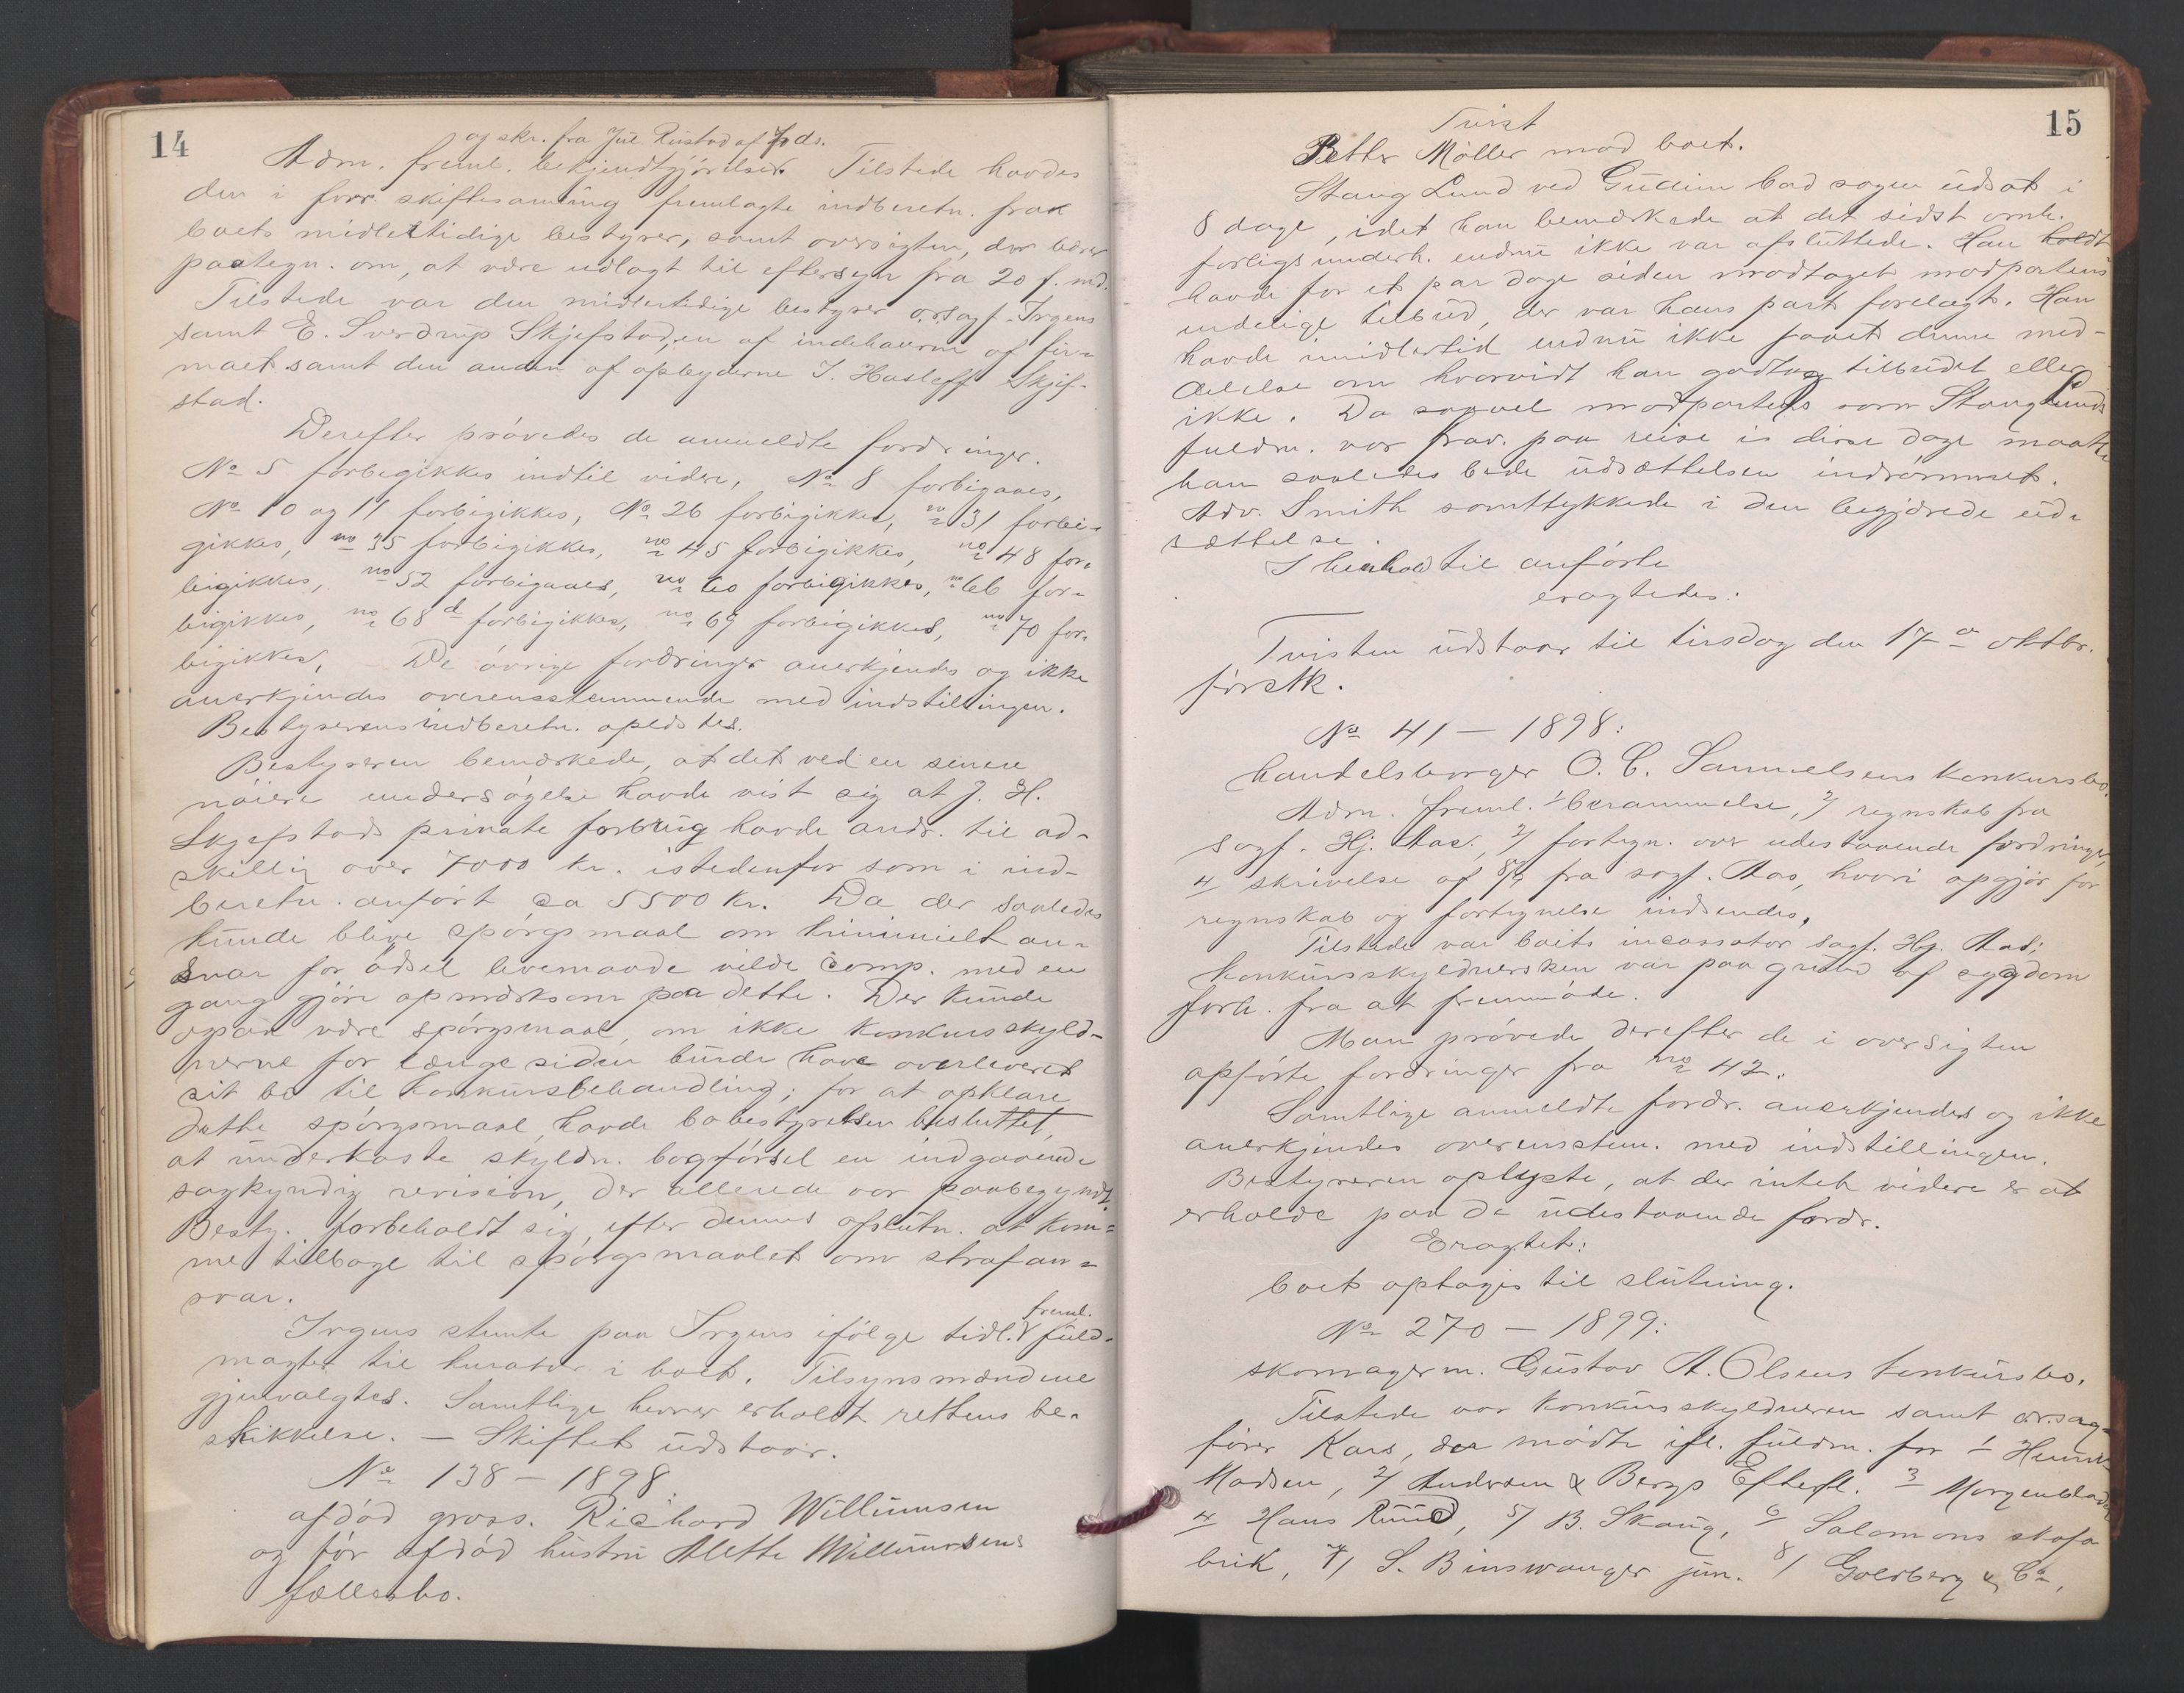 14
og skr. fra Jul Rustad af 7 ds.
Adm. freml. bekjendtgjørelser Tilstede havdes
den i forr. skiftesamling fremlagte indberetn. fra
boets midlertidige bestyrer, samt oversigten, der bærer
paategn. om, at være udlagt til eftersyn fra 20 f. md.
Tilstede var den midlertidige bestyrer o.r.sagf. Irgens
samt E. Sverdrup Skjefstad, en af indehaverne af fir-
maet samt den anden af opbyderne J. Hasleff Skjef-
stad.
Derefter prøvedes de anmeldte fordringer.
No 5 forbigikkes indtil videre, No 8 forbigaaes,
No 10 og 11 forbigikkes, No 26 forbigikkes, no 31 forbi-
gikkes, no 35 forbigikkes, no 45 forbigikkes, no 48 for-
bigikkes, no 52 forbigaaes, no 60 forbigikkes, no 66 for-
bigikkes, no 68 d forbigikkes, no 69 forbigikkes, no 70 for-
bigikkes, De øvrige fordringer anerkjendes og ikke
anerkjendes overensstemmende med indstillingen.
Bestyrerens indberetn. oplæstes.
Bestyreren bemærkede, at det ved en senere
nøiere undersøgelse havde vist sig at J. H.
Skjefstads private forbrug havde andr. til ad-
skillig over 7000 kr. istedenfor som i ind-
beretn. anført ca 5500 kr. Da der saaledes
kunde blive spørgsmaal om kriminielt an-
svar for ødsel levemaade vilde comp. med en
gang gjøre opmærksom paa dette. Der kunde
ogsaa være spørgsmaal, om ikke konkursskyld-
nerne for længe siden burde have overleveret
sit bo til konkursbehandling; for at opklare
dette spørgsmaal, havde bobestyrelsen besluttet,
at underkaste skyldn. bogførsel en indgaaende
sagkyndig revision, der allerede var paabegyndt.
Besty. forbeholdt sig, efter dennes afslutn. at kom-
me tilbage til spørgsmaalet om strafan-
svar.
Irgens stemte paa Irgens ifølge tidl. freml. fuld-
magter til kurator i boet. Tilsynsmændene
gjenvalgtes. Samtlige herrer erholdt rettens be-
skikkelse. — Skiftet udstaar.
No 138 — 1898:
afdød gross. Richard Willumsen
og før afdød hustru Alette Willumsens
fællesbo.
15
Tvist
Petter Møller mod boet.
Stang Lund ved Gudim bad sagen udsat i
8 dage, idet han bemærkede at det sidst omh.
forligsunderh. endnu ikke var afsluttede. Han holdt
havde for et par dage siden modtaget modpartens
endelige tilbud, der var hans part forelagt. Han
havde imidlertid endnu ikke faaet denne med-
delelse om hvorvidt han godtog tilbudet eller
ikke. Da saavel modpartens som Stang Lunds
fuldm. var frav. paa reise i disse dage maatte
han saaledes bede udsættelsen indrømmet.
Adv. Smith samtykkede i den begjærede ud-
sættelse.
I henhold til anførte
eragtedes:
Tvisten udstaar til tirsdag den 17de oktbr.
førstk.
No 41 — 1898:
handelsborger O. C. Samuelsens konkursbo.
Adm. freml. 1/ berammelse, 2/ regnskab fra
sagf. Hj. Aas, 3/ fortegn. over udestaaende fordringer,
4/ skrivelse af 8/9 fra sagf. Aas, hvori opgjør for
regnskab og fortegnelse indsendes.
Tilstede var boets incassator sagf. Hj. Aas;
konkursskyldnersken var paa grund af sygdom
forh. fra at fremmøde.
Man prøvede derefter de i oversigten
opførte fordringer fra no 42.
Samtlige anmeldte fordr. anerkjendes og ikke
anerkjendes overensstem. med indstillingen.
Bestyreren oplyste, at der intet videre er at
erholde paa de udestaaende fordr.
Eragtet:
boet optages til slutning.
No 270 — 1899:
skomagerm. Gustav A. Olsens konkursbo.
Tilstede var konkursskyldneren samt o.r.sag-
fører Kars, der mødte ifl. fuldm. for 1/
Madsen, 2/ Andersen & Bergs Efterfl. 3/ Morgenbladet
4/ Hans Ruud, 5/ B. Skaug, 6/ Salomons skofa
brik, 7/ S. Binswanger jun. 8/ Goldberg & Co,